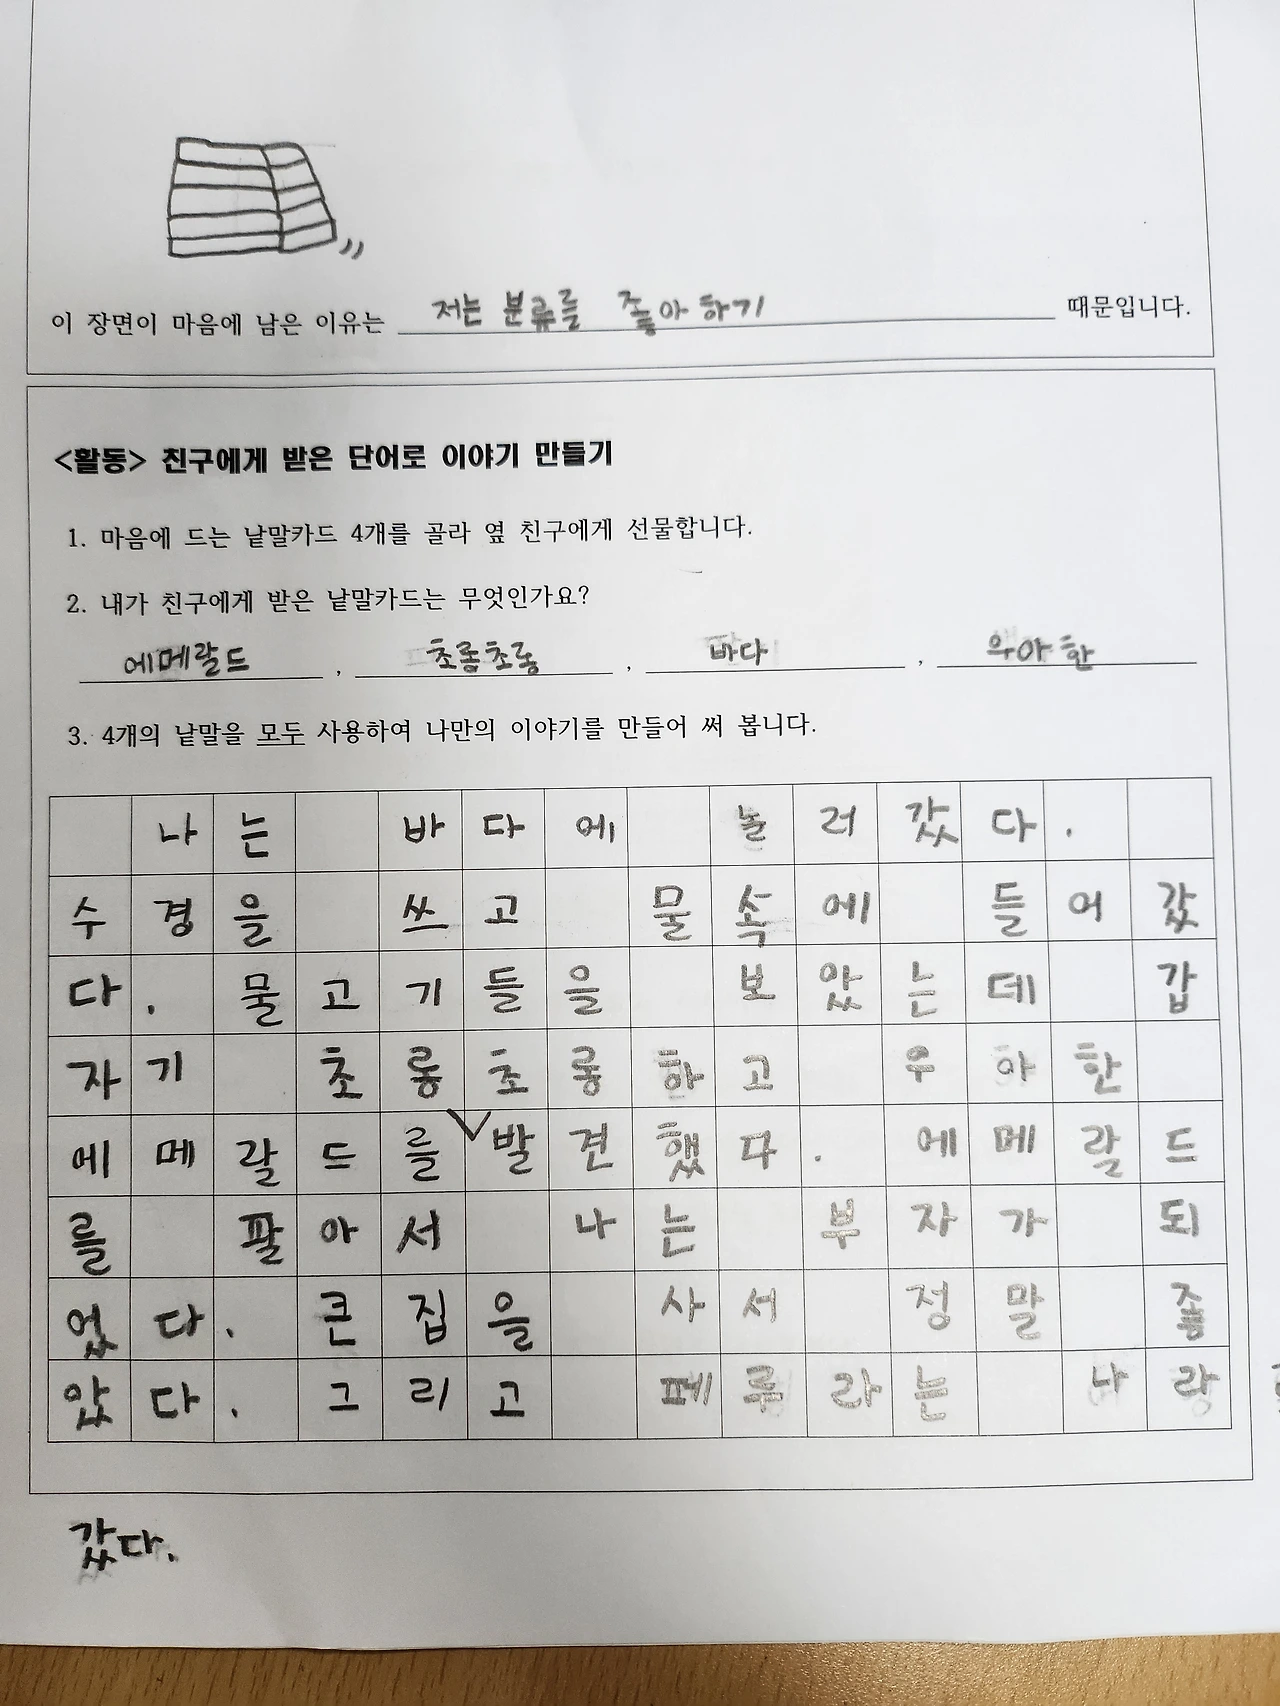 이 장면이 마음에 남은 이유는 저는 분류를 좋아하기 때문입니다.
<활동> 친구에게 받은 단어로 이야기 만들기
1. 마음에 드는 낱말카드 4개를 골라 옆 친구에게 선물합니다.
2. 내가 친구에게 받은 낱말카드는 무엇인가요?
에메랄드 , 초롱초롱 , 바다 , 우아한
3. 4개의 낱말을 모두 사용하여 나만의 이야기를 만들어 써 봅니다.
나는 바다에 놀러갔다.
수경을 쓰고 물속에 들어갔
다. 물고기들을 보았는데 갑
자기 초롱초롱하고 우아한
에메랄드를 발견했다. 에메랄드
를 팔아서 나는 부자가 되
었다. 큰 집을 사서 정말 좋
았다. 그리고 페루라는 나라
갔다.